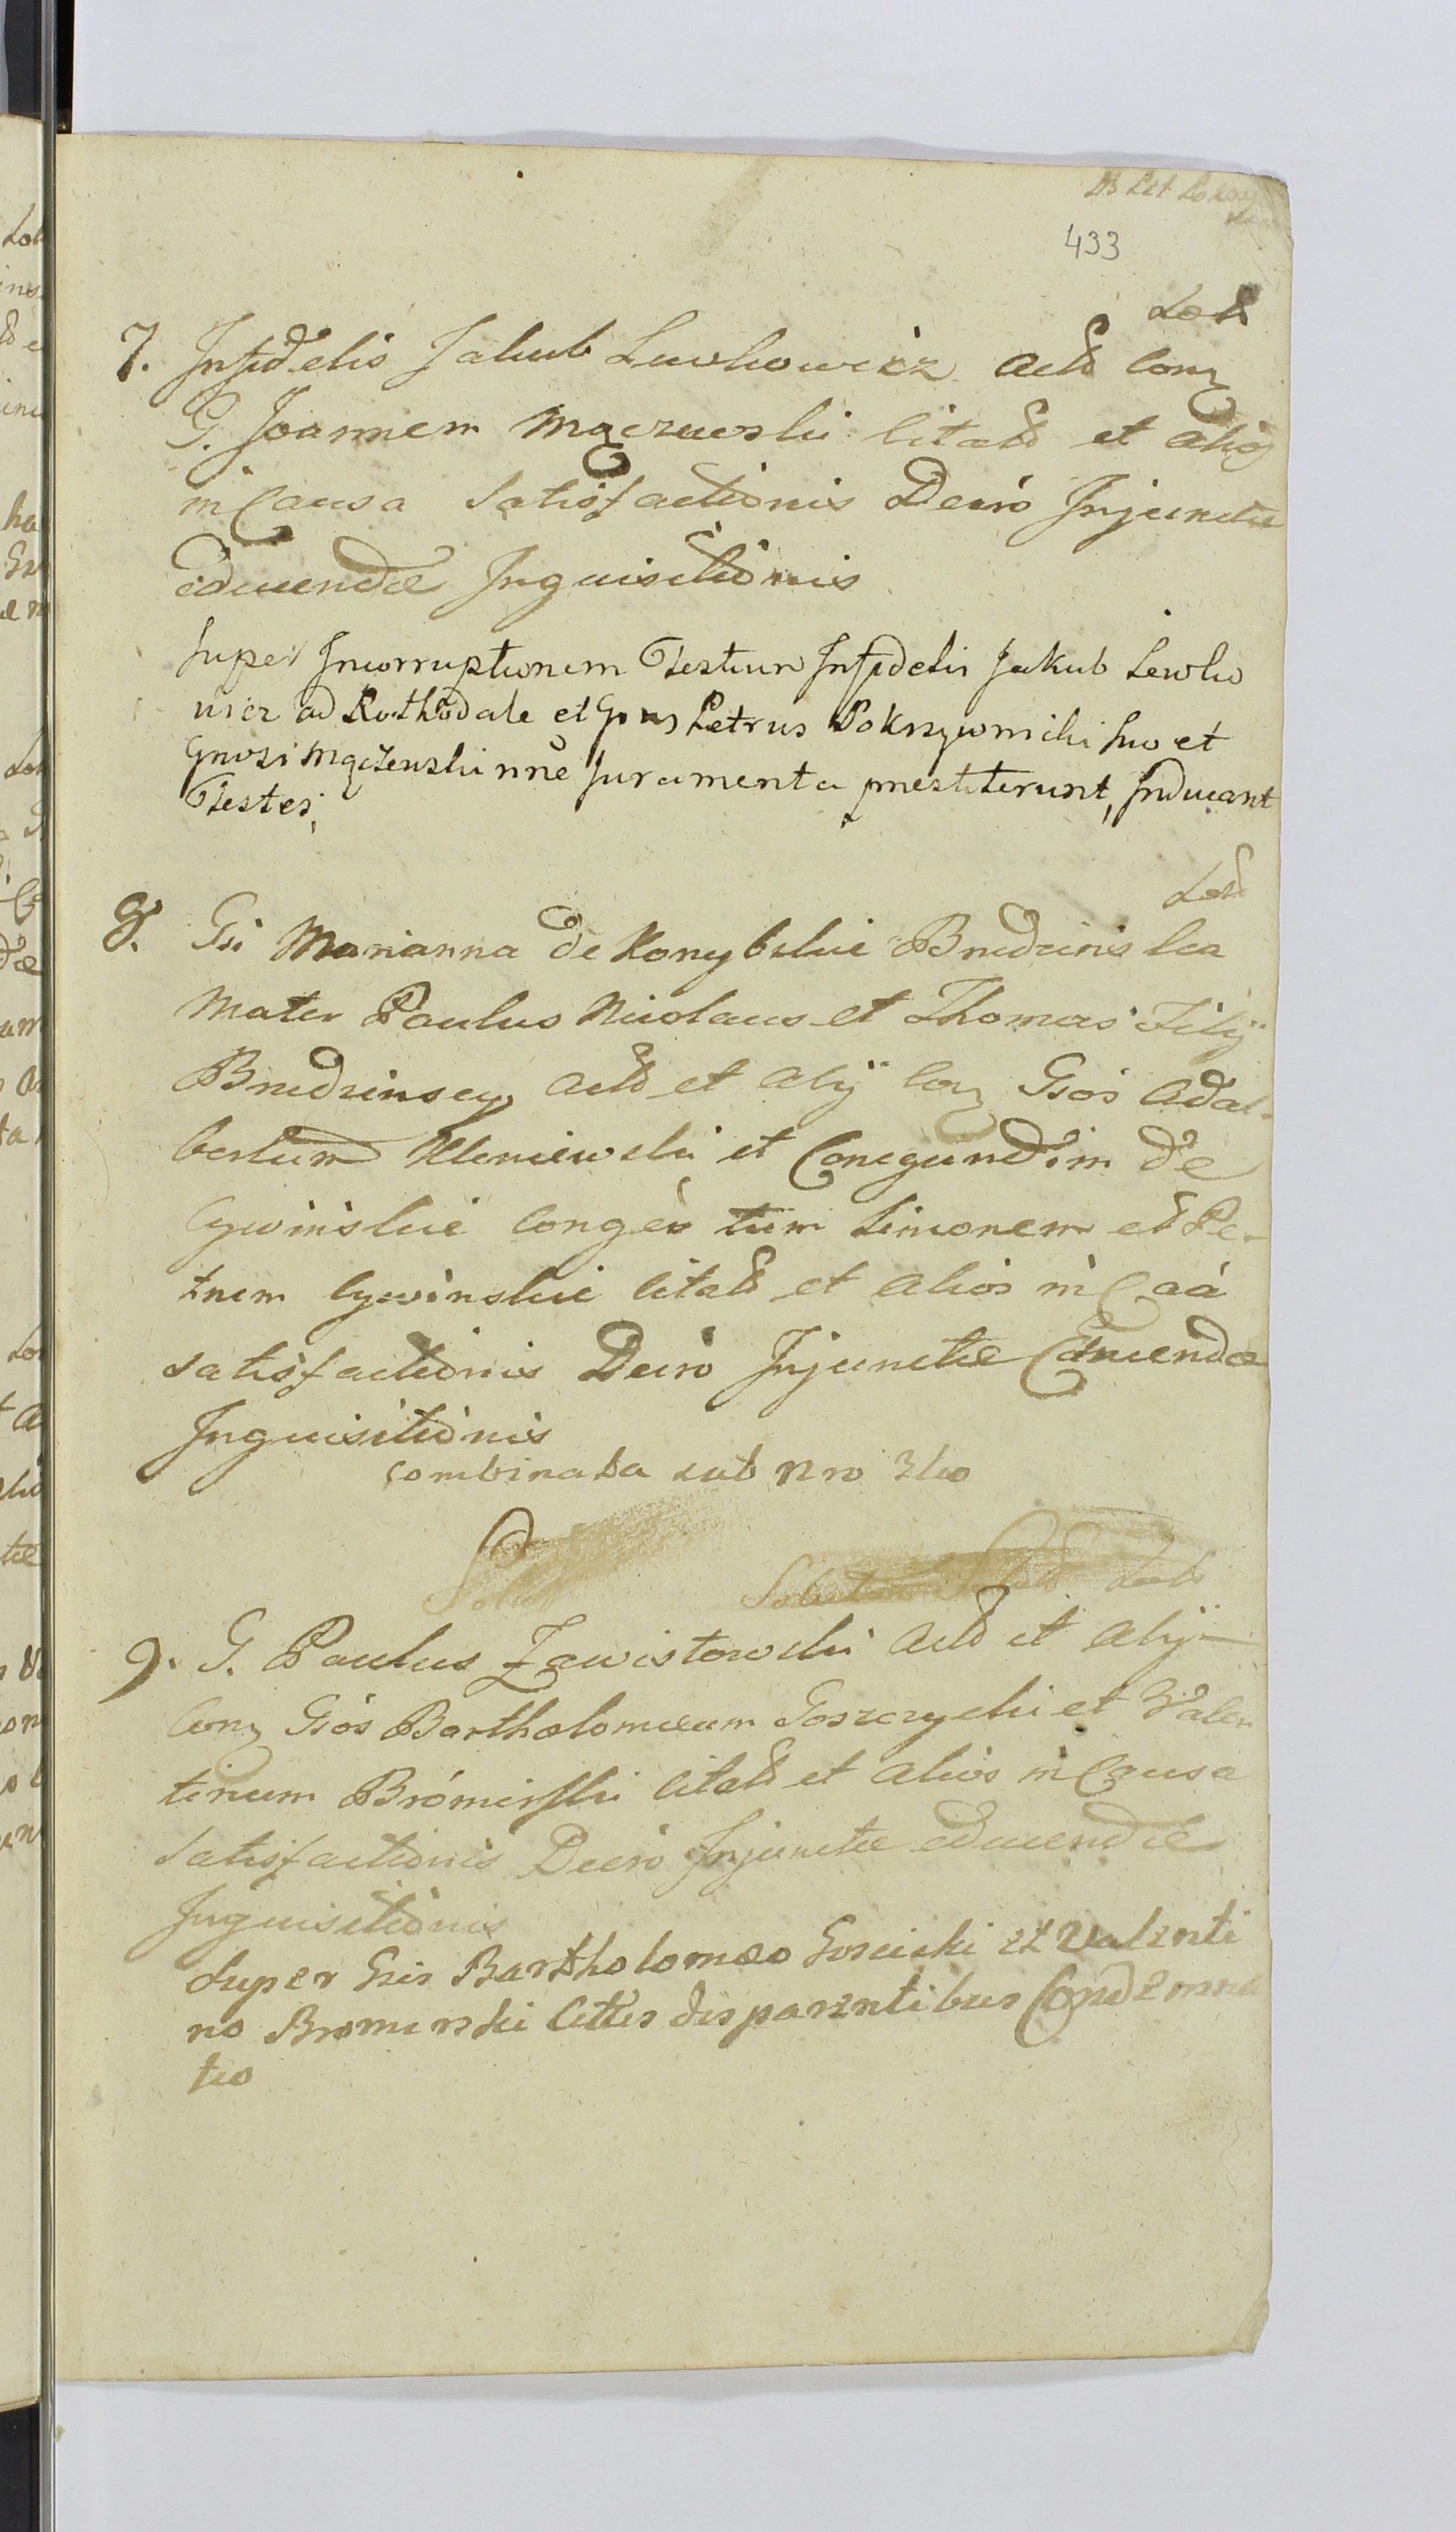 433
7. Infidelis Jakub Lewkowicz Actd Con
G. Joannem Mączewski Citatd et Alios
in Causa Satisfactionis Decro Injunctæ
educendæ Inquisitionis
Super Incorruptionem Testium Infidelis Jakub Lewko
wicz ad Rothodale et Gnsus Petrus Pokrzywnicki suo et
Gnosi Mączewski nne Juramenta prestiterunt, Inducant
Testes,
8. Gsi Marianna de Konybskie Brudzinska
Mater Paulus Nicolaus et Thomas Filij
Brudzinscy Actd et Alij Con Gsos Adal-
bertum Uleniewski et Conegundim de
Cywinskie Conges tum Simonem et Pe-
trum Cywinskie Citatd et Alios in Caa
Satisfactionis Decro Injunctæ Educendæ
Inquisitionis
combinata sub Nro 3tio
9. G. Paulus Zawistowski Actd et Alij
Con Gsos Bartholomeum Goszczycki et Valen
tinum Bromirski Citatd et Alios in Causa
Satisfactionis Decro Injunctæ educendæ
Inquisitionis
Super Gsis Bartholomæo Goscicki et Valenti
no Bromirski Cittis disparentibus Condemna
tio